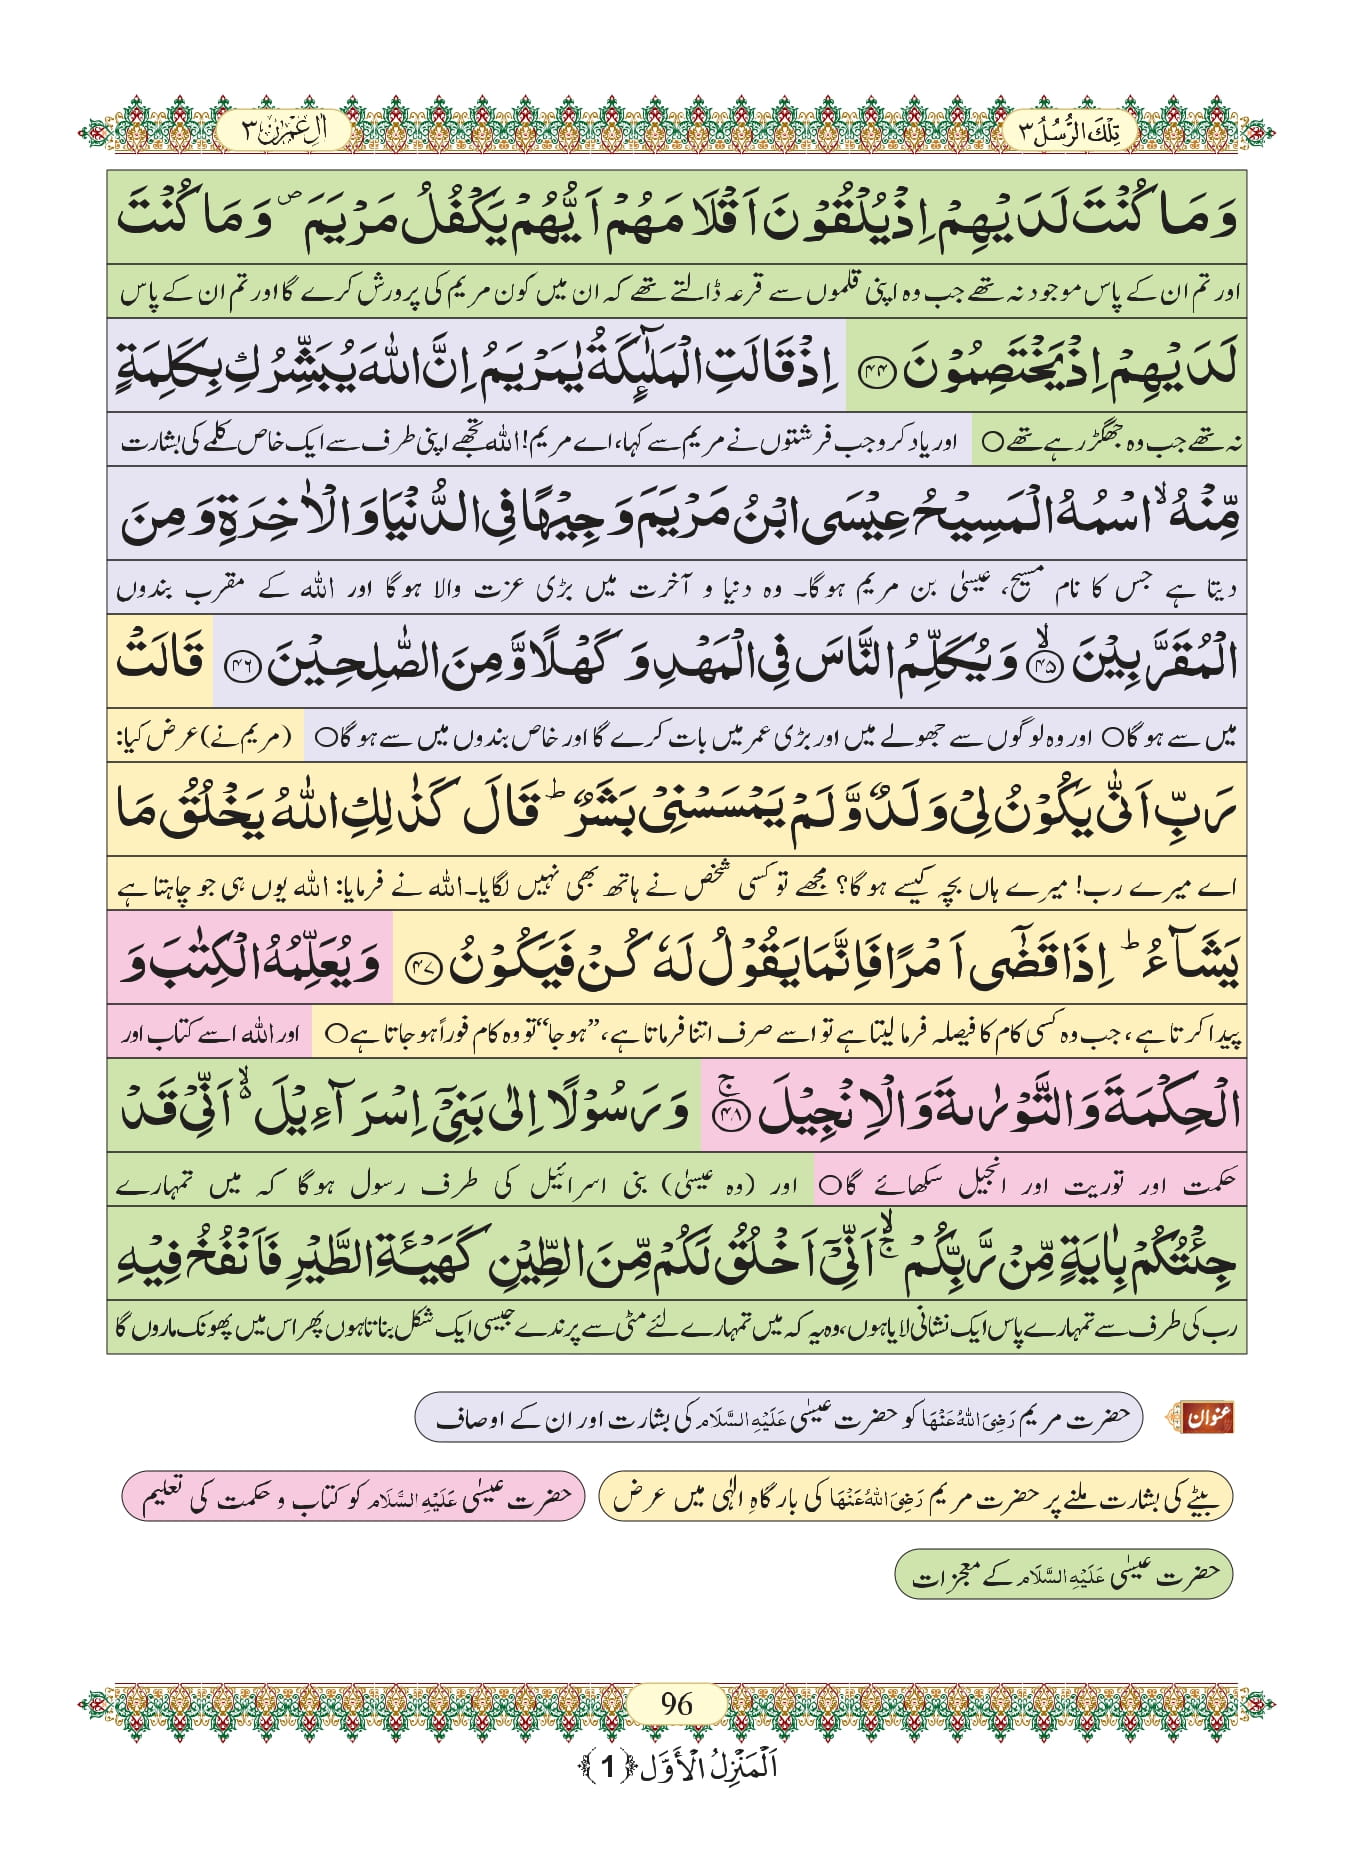 تِلْكَ الرُّسُلُ ٣
اٰلِ عِمْرٰن ٣
وَمَا كُنْتَ لَدَیْهِمْ اِذْ یُلْقُوْنَ اَقْلَامَهُمْ اَیُّهُمْ یَكْفُلُ مَرْیَمَ ۪ وَمَا كُنْتَ
اور تم ان کے پاس موجود نہ تھے جب وہ اپنی قلموں سے قرعہ ڈالتے تھے کہ ان میں کون مریم کی پرورش کرے گا اور تم ان کے پاس
لَدَیْهِمْ اِذْ یَخْتَصِمُوْنَ ﴿۴۴﴾ اِذْ قَالَتِ الْمَلٰٓىٕكَةُ یٰمَرْیَمُ اِنَّ اللّٰهَ یُبَشِّرُكِ بِكَلِمَةٍ
نہ تھے جب وہ جھگڑ رہے تھے○ اور یاد کرو جب فرشتوں نے مریم سے کہا، اے مریم! اللہ تجھے اپنی طرف سے ایک خاص کلمے کی بشارت
مِّنْهُ ۙ اسْمُهُ الْمَسِیْحُ عِیْسَى ابْنُ مَرْیَمَ وَجِیْهًا فِی الدُّنْیَا وَ الْاٰخِرَةِ وَ مِنَ
دیتا ہے جس کا نام مسیح، عیسیٰ بن مریم ہوگا۔ وہ دنیا و آخرت میں بڑی عزت والا ہوگا اور اللہ کے مقرب بندوں
الْمُقَرَّبِیْنَ ۙ﴿۴۵﴾ وَ یُكَلِّمُ النَّاسَ فِی الْمَهْدِ وَ كَهْلًا وَّ مِنَ الصّٰلِحِیْنَ ﴿۴۶﴾ قَالَتْ
میں سے ہوگا○ اور وہ لوگوں سے جھولے میں اور بڑی عمر میں بات کرے گا اور خاص بندوں میں سے ہوگا○ (مریم نے) عرض کیا:
رَبِّ اَنّٰى یَكُوْنُ لِیْ وَلَدٌ وَّ لَمْ یَمْسَسْنِیْ بَشَرٌ ؕ قَالَ كَذٰلِكِ اللّٰهُ یَخْلُقُ مَا
اے میرے رب! میرے ہاں بچہ کیسے ہوگا؟ مجھے تو کسی شخص نے ہاتھ بھی نہیں لگایا۔اللہ نے فرمایا: اللہ یوں ہی جو چاہتا ہے
یَشَآءُ ؕ اِذَا قَضٰۤى اَمْرًا فَاِنَّمَا یَقُوْلُ لَهٗ كُنْ فَیَكُوْنُ ﴿۴۷﴾ وَ یُعَلِّمُهُ الْكِتٰبَ وَ
پیدا کرتا ہے، جب وہ کسی کام کا فیصلہ فرمالیتا ہے تو اسے صرف اتنا فرماتا ہے، ’’ہوجا‘‘ تو وہ کام فوراً ہوجاتا ہے○ اور اللہ اسے کتاب اور
الْحِكْمَةَ وَ التَّوْرٰىةَ وَ الْاِنْجِیْلَ ۚ﴿۴۸﴾ وَ رَسُوْلًا اِلٰى بَنِیْۤ اِسْرَآءِیْلَ ۙ۬ اَنِّیْ قَدْ
حکمت اور توریت اور انجیل سکھائے گا○ اور (وہ عیسیٰ) بنی اسرائیل کی طرف رسول ہوگا کہ میں تمہارے
جِئْتُكُمْ بِاٰیَةٍ مِّنْ رَّبِّكُمْ ۙۚ اَنِّیْۤ اَخْلُقُ لَكُمْ مِّنَ الطِّیْنِ كَهَیْــٴَـةِ الطَّیْرِ فَاَنْفُخُ فِیْهِ
رب کی طرف سے تمہارے پاس ایک نشانی لایا ہوں، وہ یہ کہ میں تمہارے لئے مٹی سے پرندے جیسی ایک شکل بناتا ہوں پھر اس میں پھونک ماروں گا
عنوان
حضرت مریم رَضِیَ اللّٰهُ عَنْهَا کو حضرت عیسیٰ عَلَیْهِ السَّلَام کی بشارت اور ان کے اوصاف
بیٹے کی بشارت ملنے پر حضرت مریم رَضِیَ اللّٰهُ عَنْهَا کی بارگاہِ الٰہی میں عرض
حضرت عیسیٰ عَلَیْهِ السَّلَام کو کتاب و حکمت کی تعلیم
حضرت عیسیٰ عَلَیْهِ السَّلَام کے معجزات
96
اَلْمَنْزِلُ الْاَوَّل ﴿1﴾